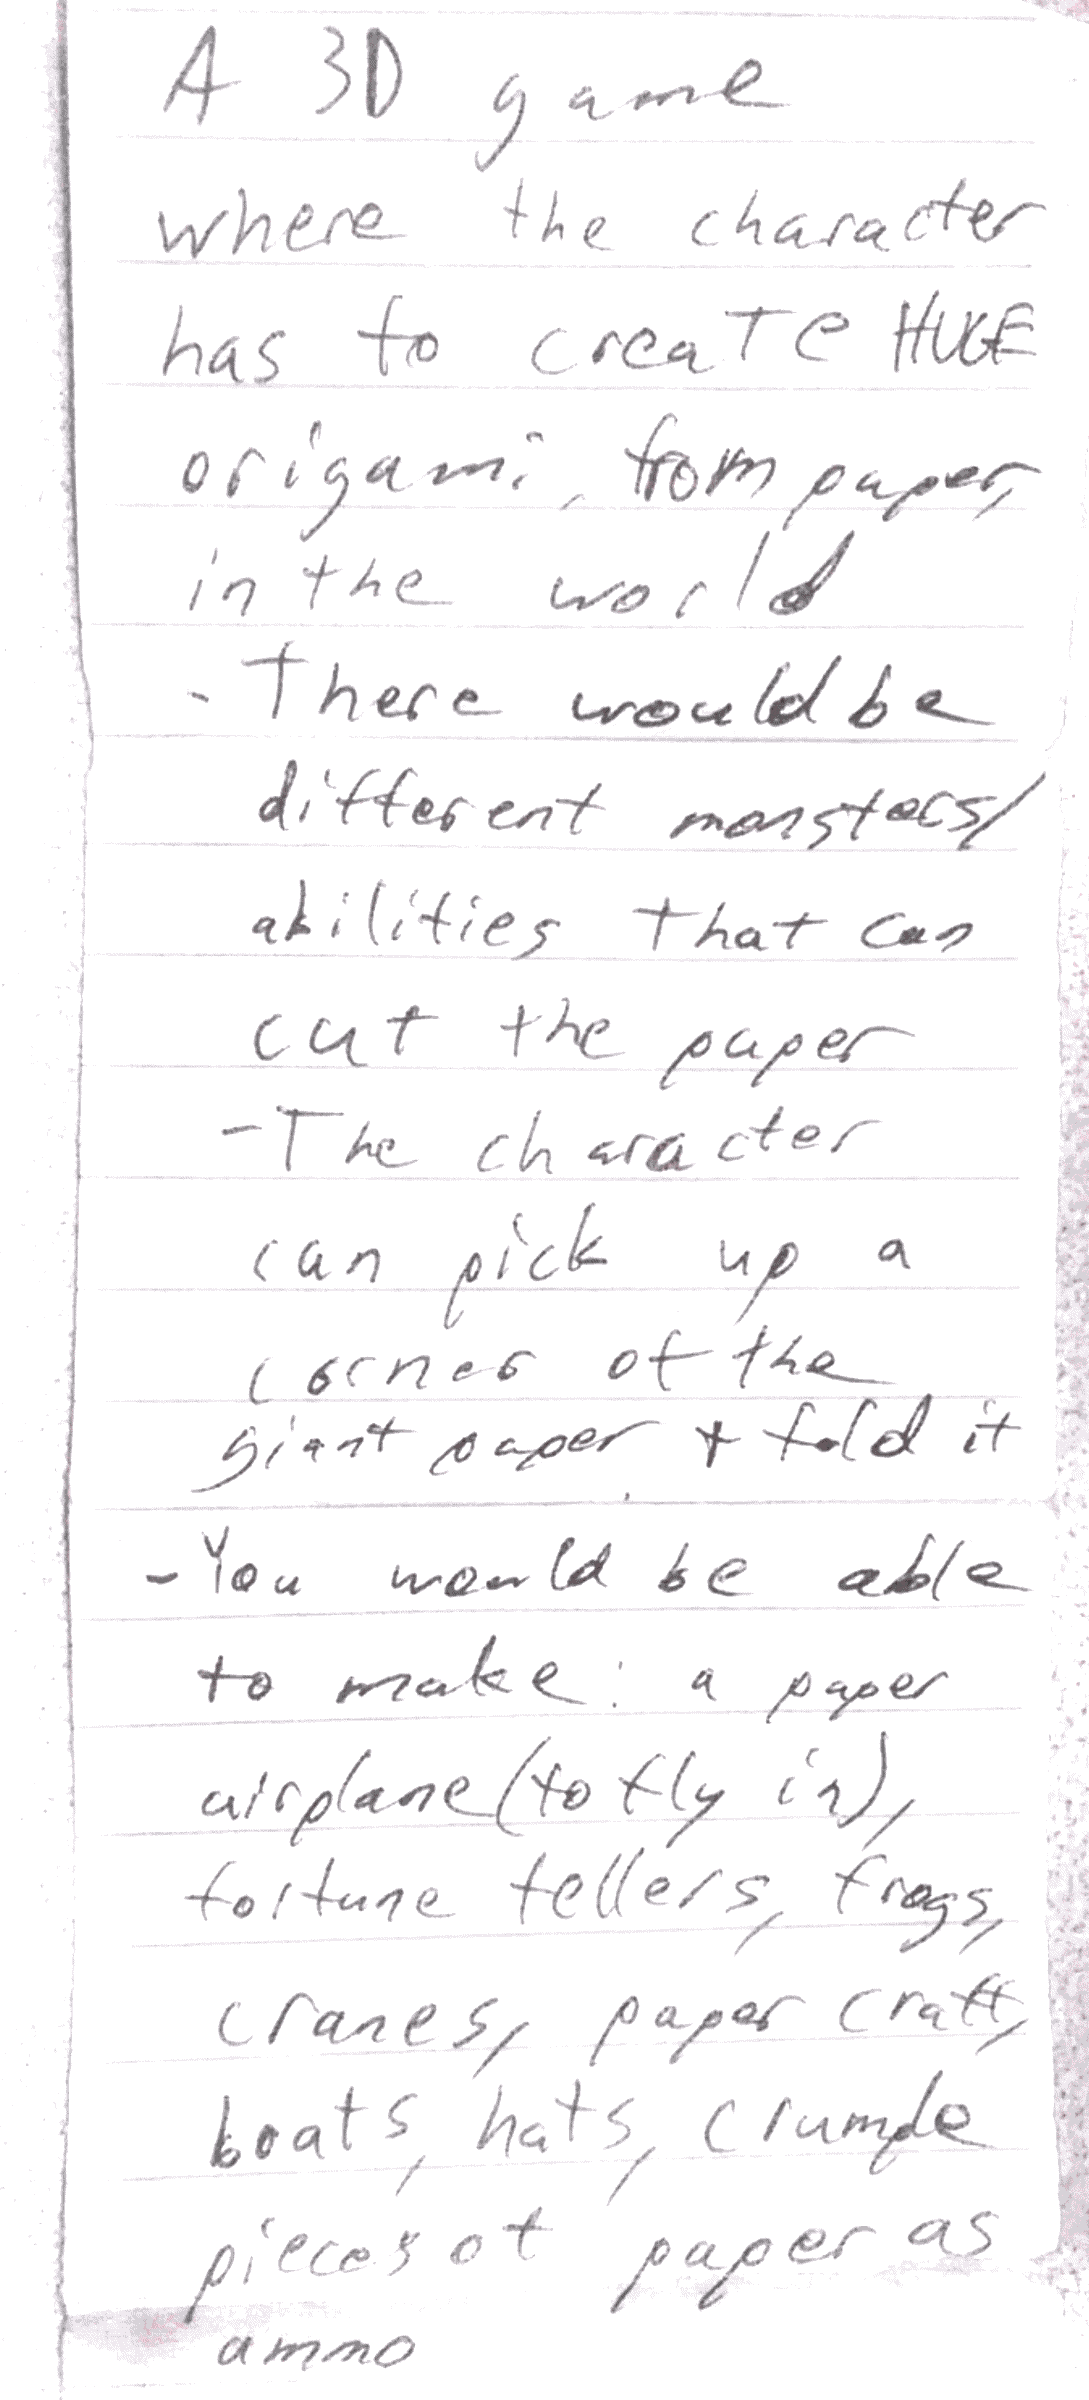 A 3D game
where the character
has to create HUGE
origami, from paper,
in the world
- There would be
different monsters/
abilities that can
cut the paper
- The character
can pick up a
corner of the
giant paper + fold it
- You would be able
to make: a paper
airplane (to fly in),
fortune tellers, frogs,
cranes, paper craft,
boats, hats, crumple
pieces of paper as
ammo